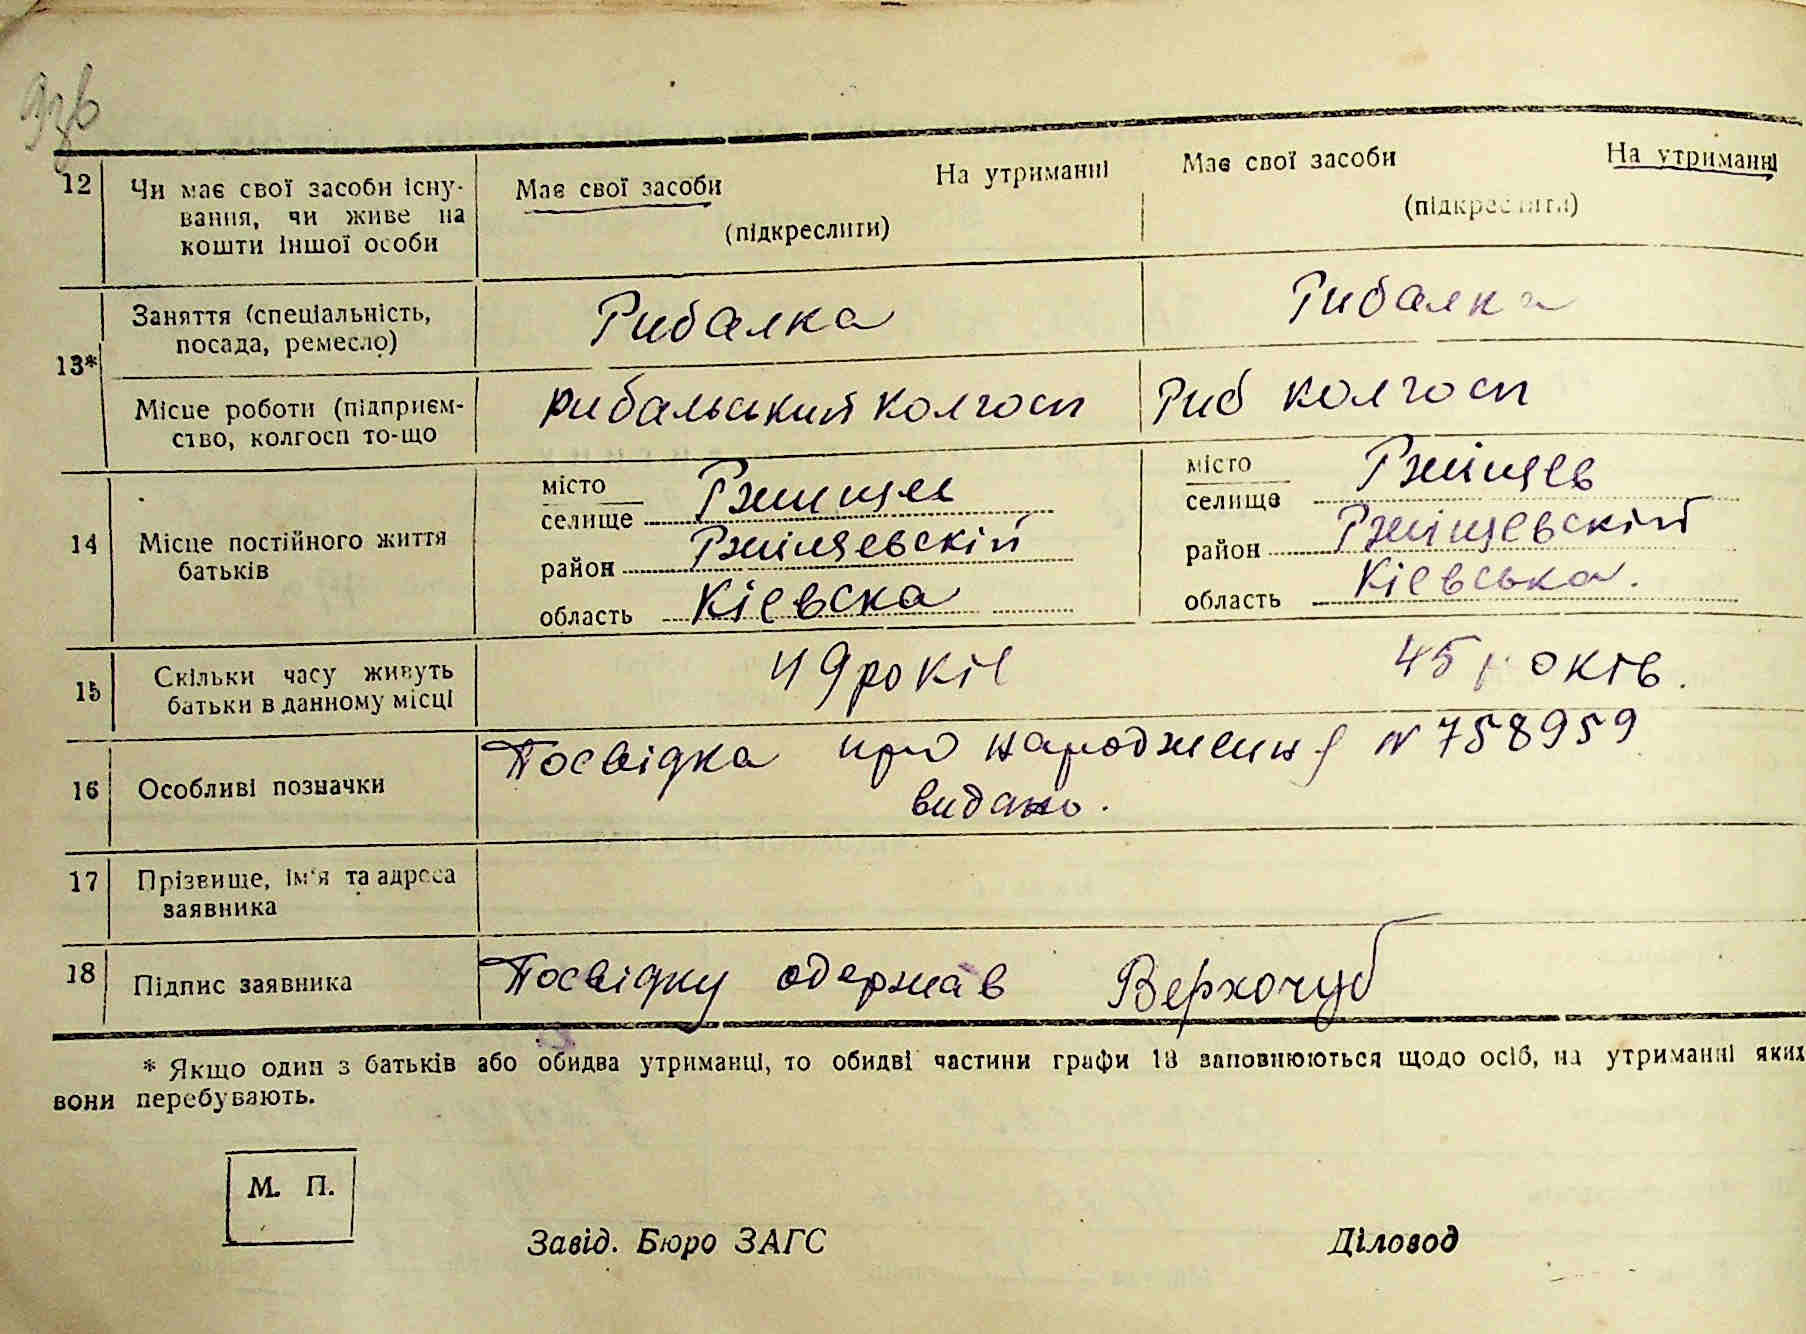 93б
12 Чи має свої засоби існу-
вання, чи живе на
кошти іншої особи
Має свої засоби На утриманні
(підкреслити)
Має свої засоби На утриманні
(підкреслити)
13*
Заняття (спеціальність,
посада, ремесло)
Рибалка
Рибалка
Місце роботи (підприєм-
ство, колгосп то-що
рибальський колгосп
Риб колгосп
14 Місце постійного життя
батьків
місто
селище Ржищев
район Ржіщевскій
область Кіевска
місто
селище Ржіщев
район Ржіщевскій
область Кіевська.
15 Скільки часу живуть
батьки в данному місці
49 років
45 років.
16 Особливі позначки
Посвідка про народження № 758959
видано.
17 Прізвище, ім'я та адреса
заявника
18 Підпис заявника
Посвідку одержав Верхочуб
* Якщо один з батьків або обидва утриманці, то обидві частини графи 13 заповнюються щодо осіб, на утриманні яких
вони перебувають.
М. П.
Завід. Бюро ЗАГС Діловод